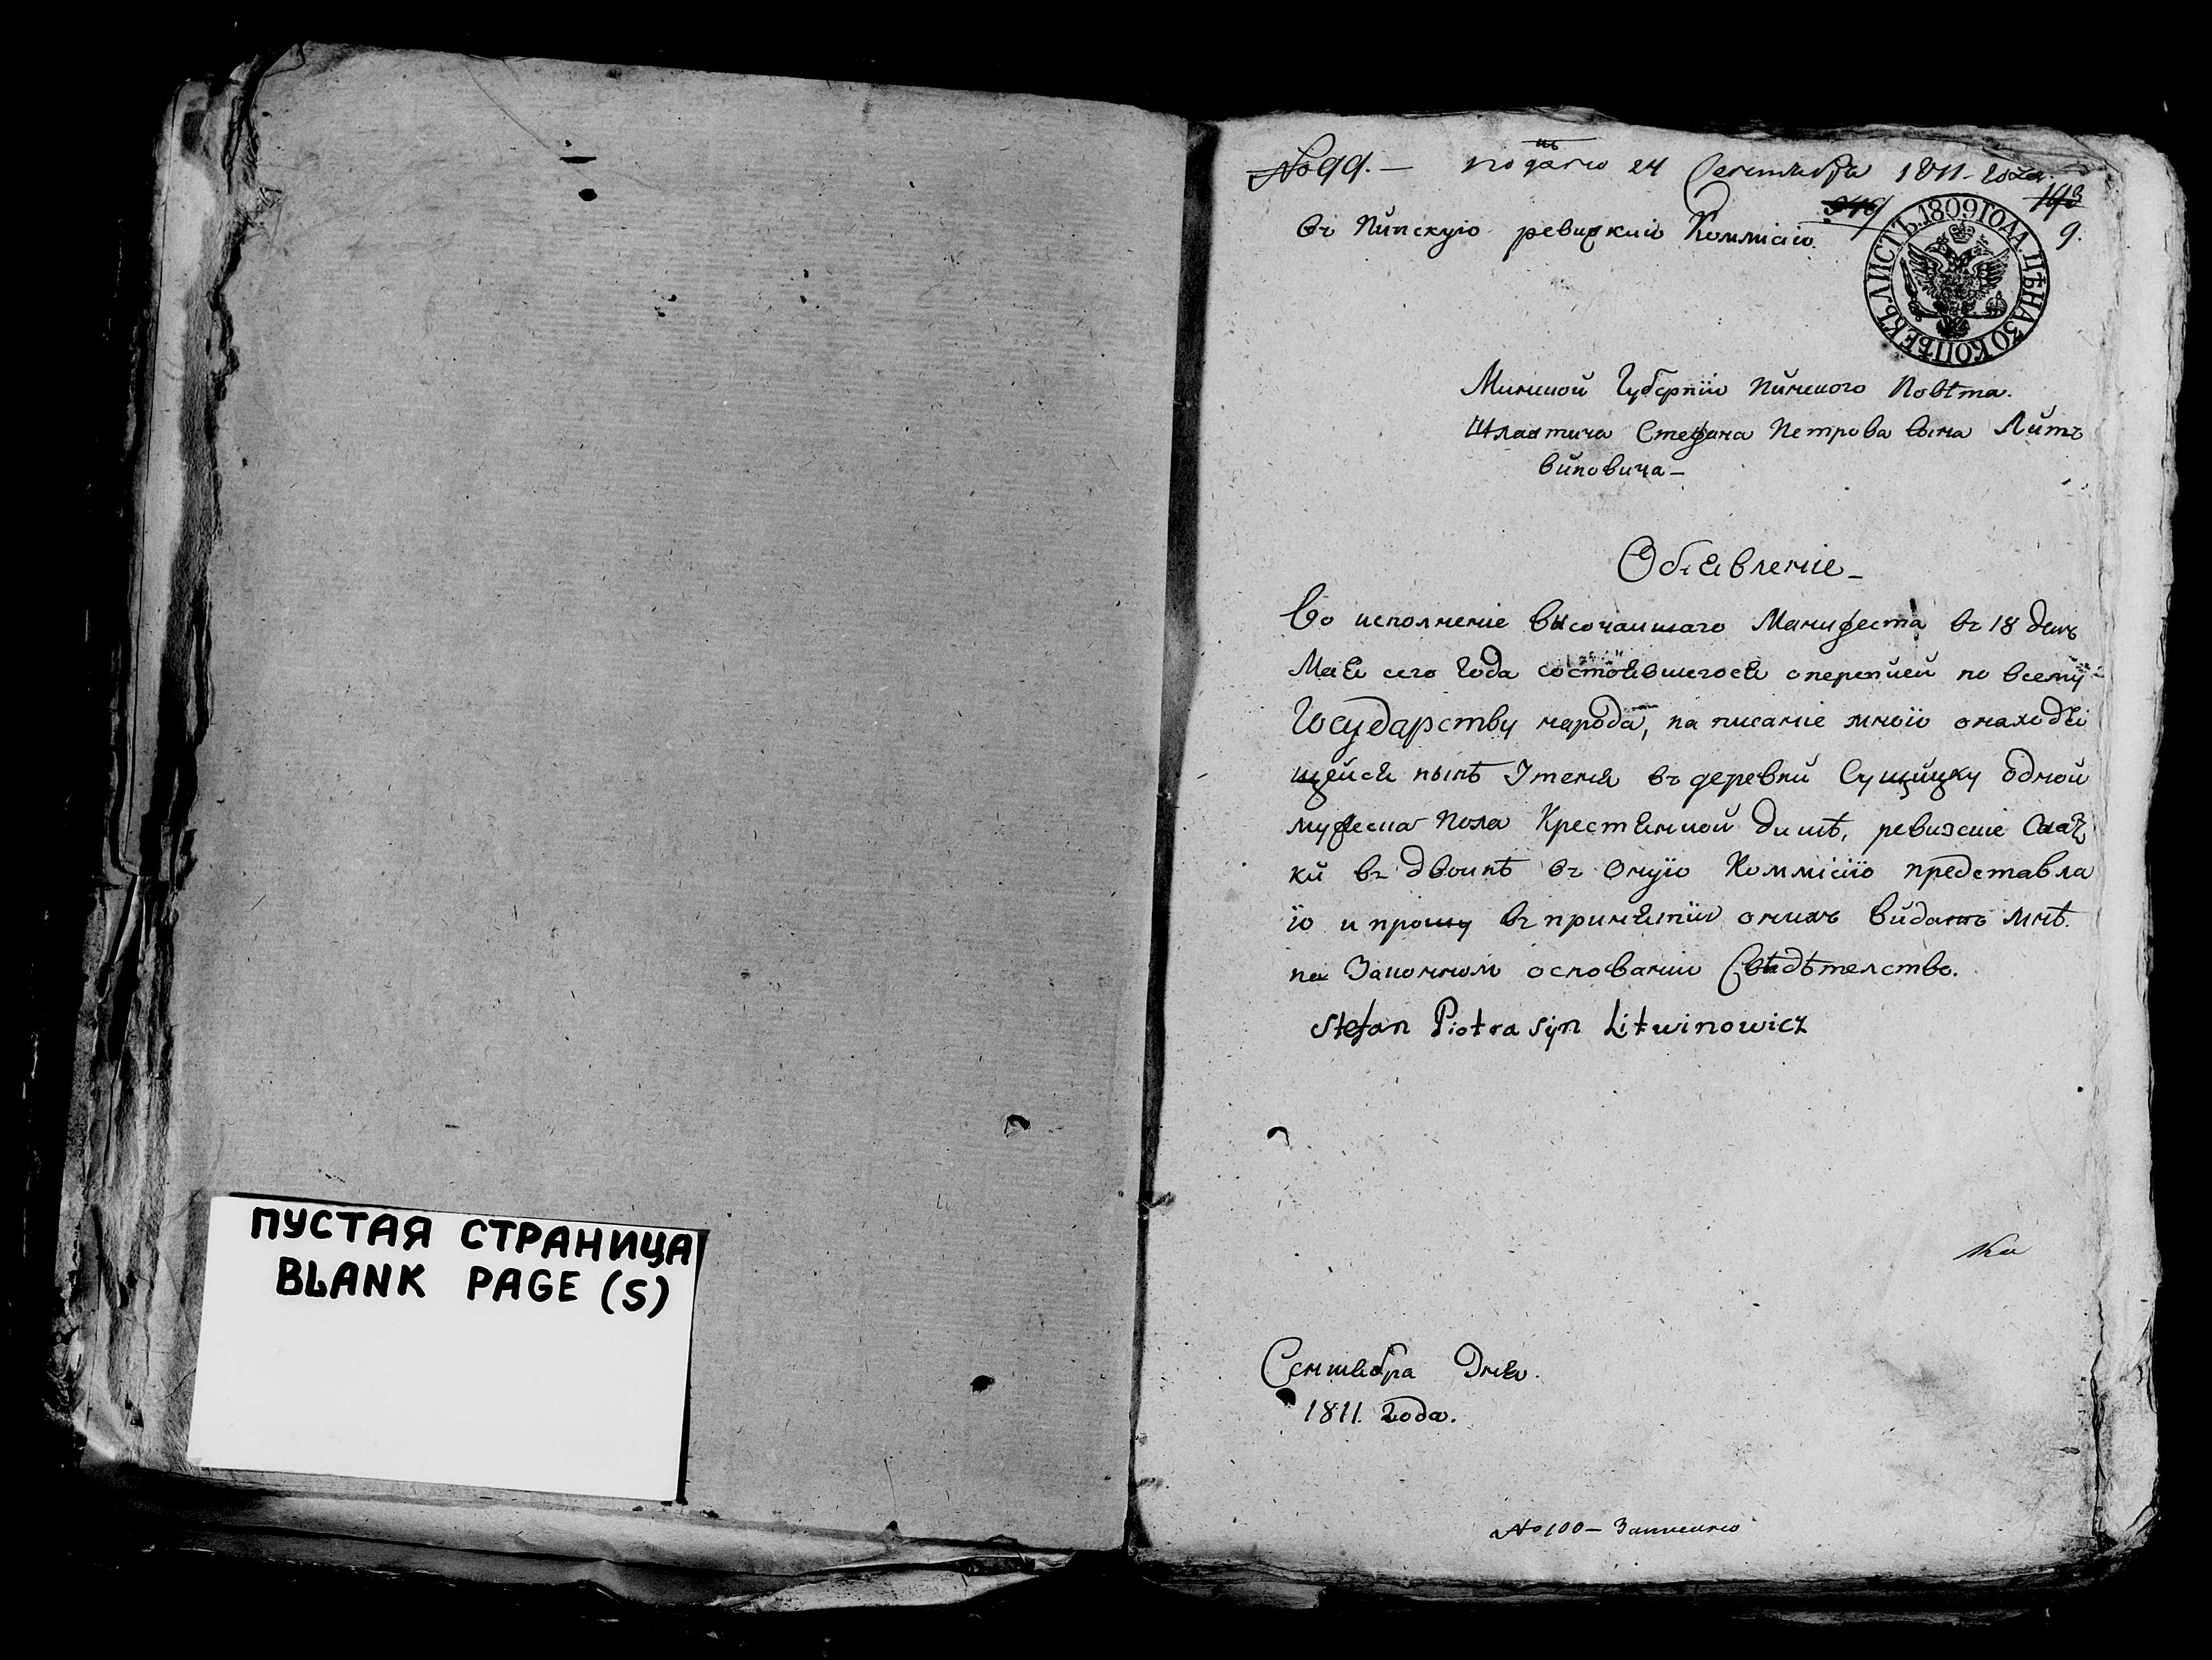 ПУСТАЯ СТРАНИЦА
BLANK PAGE (S)
№99. — подано 24 Сентября 1811 года.
193
въ Пинскую ревискию Коммісію.
9.
ЛИСТЪ. 1809 ГОДА. ЦѢНА 30 КОПѢЕКЪ
Минской Губерніи Пинского Повѣта.
Шляхтича Стефана Петрова сына Литъ
виновича —
Объявленіе —
Во исполненіе высочаишаго Манифеста въ 18 день
Мая сего года состоявшегося о переписи по всему
Государству народа, на писаніе мною о находя
щейся нынѣ Именя въ деревни Сущицку одной
мужеска пола Крестянской душѣ, ревизские Сказ
ки въ двоинѣ въ Оную Коммісію представля
ю и прошу въ принятіи онихъ видать мнѣ
на Законном основании Свѣдѣтелство.
Stefan Piotra syn Litwinowicz
Сентября Дня.
1811. Года.
№100 — Записано